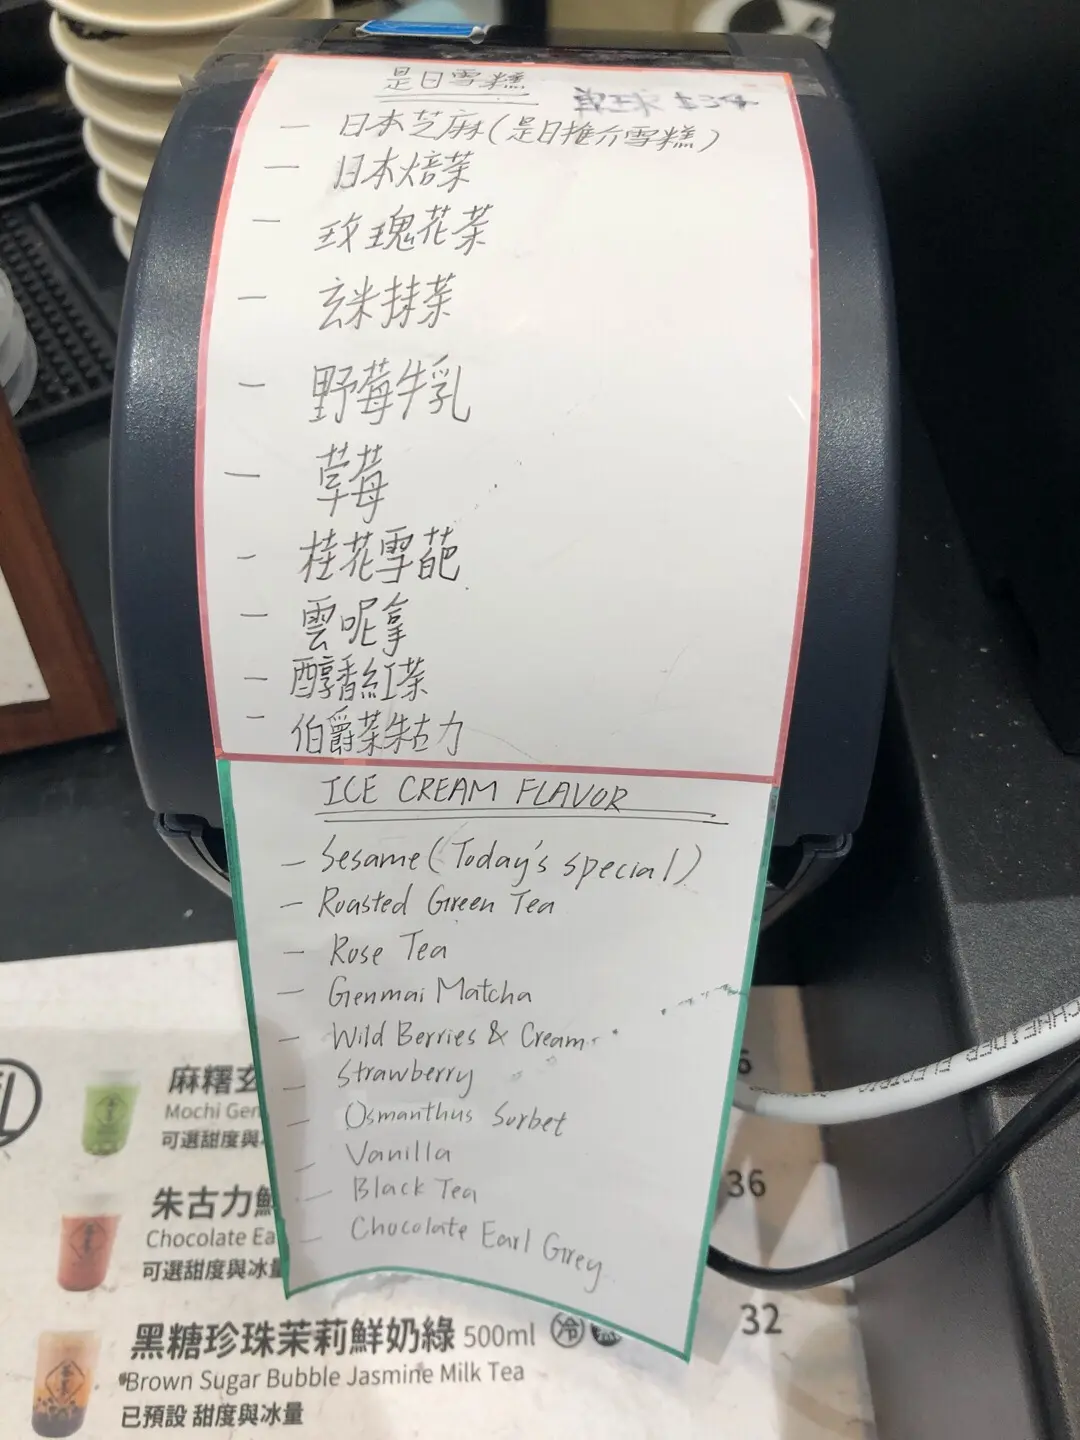 是日雪糕
單球 $34
- 日本芝麻(是日推介雪糕)
- 日本焙茶
- 玫瑰花茶
- 玄米抹茶
- 野莓牛乳
- 草莓
- 桂花雪葩
- 雲呢拿
- 醇香紅茶
- 伯爵茶朱古力
ICE CREAM FLAVOR
- Sesame (Today's special)
- Roasted Green Tea
- Rose Tea
- Genmai Matcha
- Wild Berries & Cream
- Strawberry
- Osmanthus Sorbet
- Vanilla
- Black Tea
- Chocolate Earl Grey
SCHNEIDER ELECTRIC
麻糬玄
Mochi Gen
可選甜度與
6
朱古力鮮
Chocolate Ea
可選甜度與冰量
36
黑糖珍珠茉莉鮮奶綠 500ml 冷
Brown Sugar Bubble Jasmine Milk Tea
已預設 甜度與冰量
32